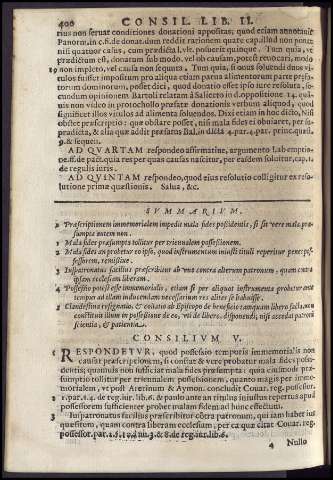 400 CONSIL. LIB. II.
rius non seruat conditiones donationi appositas; quod etiam annotauit
Panorm. in c. fi. de donat. dum reddit rationem quare capilluo non ponit
nisi quatuor casus, cum prædicta l. vlt. posuerit quinque. Tum quia, vt
prædictum est, donatum sub modo, vel ob causam, potest reuocari, modo
19 non impleto, vel causa non sequuta. Tum quia, si onus soluendi duos vi-
tulos fuisset impositum alio propria etiam partua alimentorum parte præfa-
torum dominorum, posset dici, quod donatio esset ipso iure resoluta, se-
cundum opinionem Bartoli relatam à Saliceto in d. oppositione 14. qua-
uis non video in protochollo præfatæ donationis verbum aliquod, quod
significet illos vitulos ad alimenta soluendos. Dixi etiam in hoc dicto, Nisi
obstet præscriptio: quæ obstare posset, nisi mala fides ei obuiaret, per su-
pradicta, & alia quæ addit præfatus Bal. in dicta 4. par. 4. par. princ. quæst.
9. & sequen.
AD QVARTAM respondeo affirmatiue, argumento L. ab emptio-
ne, ff. de pact. quia res per quas causas nascitur, per easdem soluitur, cap. 1.
de regulis iuris.
AD QVINTAM respondeo, quod eius resolutio colligitur ex reso-
lutione primæ quæstionis. Salua, &c.
SVMMARIVM.
1 Præscriptionem immemorialem impedit mala fides possidentis, si sit vere mala, præ-
sumpta autem non.
2 Mala fides præsumpta tollitur per triennalem possessionem.
3 Mala fides an probetur eo ipso, quod instrumentum iniusti tituli reperitur penes pos-
sessorem, remissiue.
3 Iuspatronatus facilius præscribitur ab vno contra alterum patronum, quam contra
ipsam ecclesiam liberam.
4 Possessio potest esse immemorialis, etiam si per aliquot instrumenta probetur ante
tempus ad illam inducendam necessarium rex aliter se habuisse.
5 Clandestina resignatio, & collatio ab Episcopo de beneficio tamquam libero facta, non
constituit illum in possessione de eo, vti de libero, disponendi, nisi accedat patroni
scientia, & patientia.
CONSILIVM V.
1 RESPONDETVR, quod possessio temporis immemorialis non
causat præscriptionem, si constat & vere probetur mala fides possi-
dentis; quamuis non sufficiat mala fides præsumpta: quia eiusmodi præ-
sumptio tollitur per triennalem possessionem, quanto magis per imme-
morialem, vt post Aretinum & Aymon. concludit Couar. reg. possessor.
2 1. par. §. 4. de reg. iur. lib. 6. & paulo ante an titulus iniustus repertus apud
possessorem sufficienter probet malam fidem ad hunc effectum.
3 Iuspatronatus facilius præscribitur cõtra patronum, qui iam habet ius
quæsitum, quam contra ecclesiam liberam, per ea quæ citat Couar. reg.
possessor. par. 2. §. 10. nu. 3. & 8. de reg. iur. lib. 6.
4 Nullo